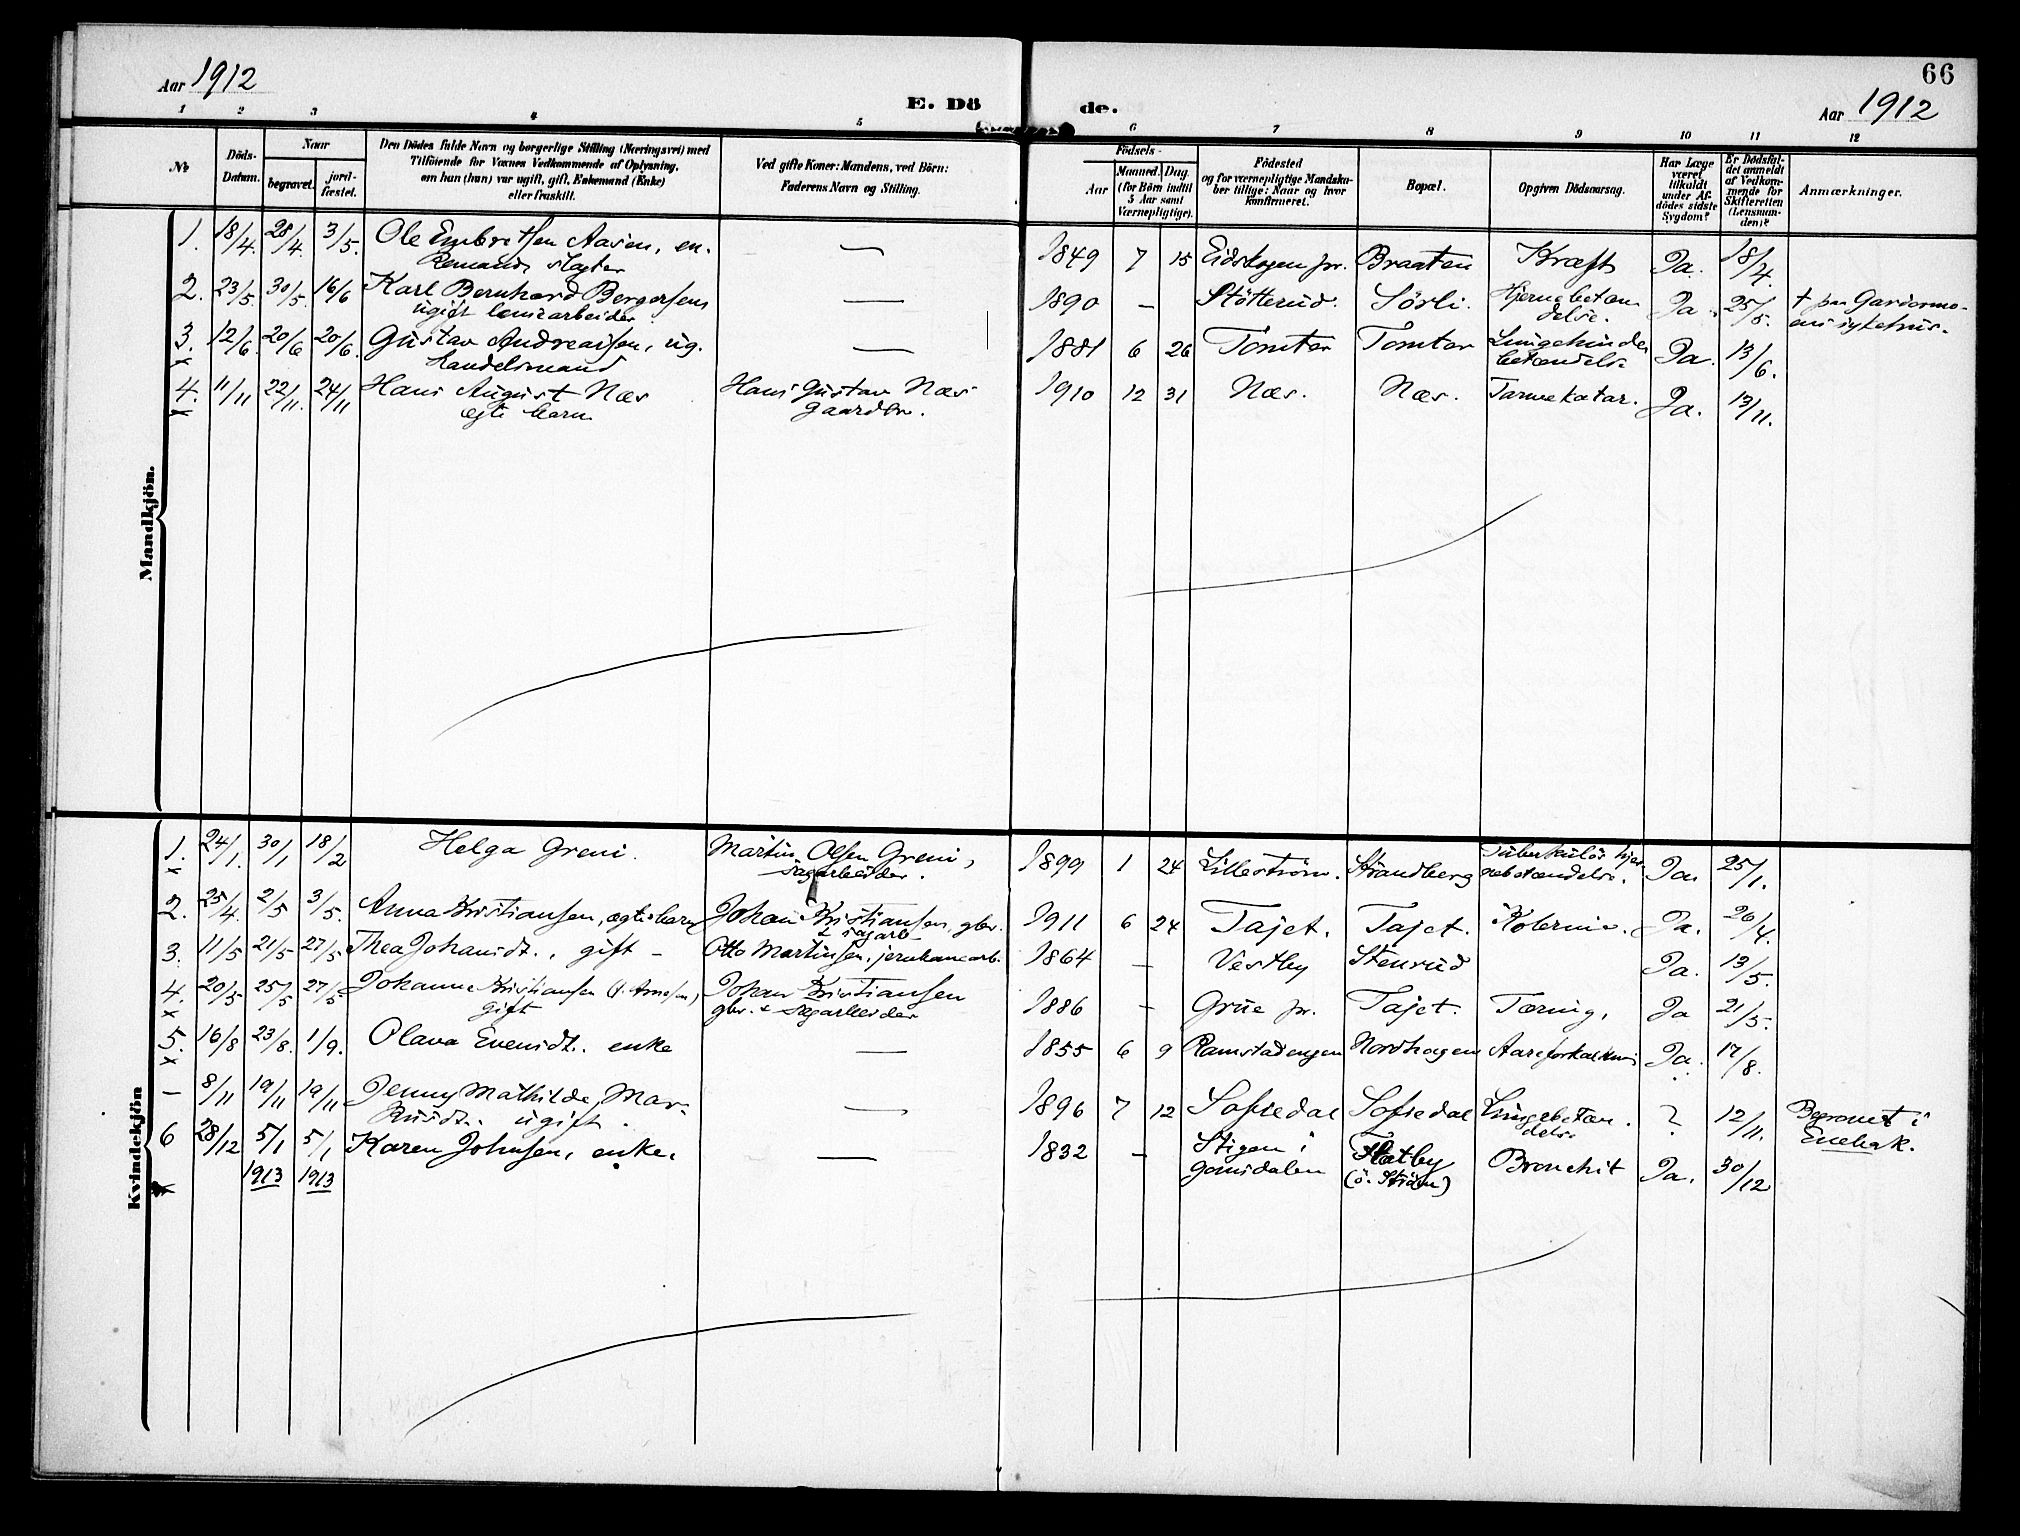 Aar 1912
E. Dö de.
66
Aar 1912
1 2 3 4 5 6 7 8 9 10 11 12
No
Döds-Datum.
Naar
begravet.
jord-fæstet.
Den Dödes fulde Navn og borgerlige Stilling (Næringsvei) med
Tilföiende for Voxnes Vedkommende af Oplysning,
om han (hun) var ugift, gift, Enkemand (Enke)
eller fraskilt.
Ved gifte Koner: Mandens, ved Börn:
Faderens Navn og Stilling.
Födsels-
Aar
Maaned. Dag.
(for Börn indtil
5 Aar samt
Værnepligtige).
Födested
og for værnepligtige Mandska-
ber tillige: Naar og hvor
konfirmeret.
Bopæl.
Opgiven Dödsaarsag.
Har Læge
været
tilkaldt
under Af-
dödes sidste
Sygdom?
Er Dödsfal-
det anmeldt
af Vedkom-
mende for
Skifteretten
(Lensman-
den)?
Anmærkninger.
Mandkjön.
1. 18/4. 28/4. 3/5. Ole Embretsen Aasen, en- — 1849 7 15 Eidskogen pr. Braaten Kræft Ja. 18/4.
kemand, slagter
2. 23/5. 30/5. 16/6 Karl Bernhard Bergersen — 1890 — Stötterud. Sörli. Hjernebetæn Ja. 25/5. † paa Gardermo-
ugift, løusarbeider delse. ens sykehus.
3. 12/6. 20/6 20/6. Gustav Andreassen, ug. — 1881 6 26 Tomter Tomter Lungehinde Ja. 13/6.
x handelsmand betændelse
4. 11/11 22/11. 24/11 Hans August Næs Hans Gustav Næs 1910 12 31 Næs. Næs. Tarmekatar. Ja. 13/11.
x egte barn gaardbr.
Kvindekjön
1. 24/1. 30/1 18/2 Helga Greni. Martin Olsen Greni, 1899 1 24 Lilleström. Strandberg Tuberkulös hjer- Ja 25/1.
x sagarbeider. nebetændelse.
2. 25/4. 2/5 3/5. Anna Kristiansen, ægtebarn Johan Kristiansen, gbr. 1911 6 24 Tajet. Tajet. Kolerine. Ja. 26/4.
+ sagarb
3. 11/5 21/5 27/5 Thea Johansdt., gift – Otto Martinsen, jernbanearb. 1864 — Vestby Stenrud Ja. 13/5.
4. 20/5 25/5 27/5 Johanne Kristiansen (f. Arnesen) Johan Kristiansen 1886 — Grue pr. Tajet. Tæring, Ja 21/5.
x gift gbr. + sagarbeider
5. 16/8 23/8. 1/9. Olava Evensdt. enke — 1855 6 9 Ramstadengen Nordhagen Aareforkalkning Ja. 17/8.
x
— 8/11 19/11 19/11 Jenny Mathilde Mar- — 1896 7 12 Sofiedal Sofiedal Lungebetæn- ? 12/11. Begravet i
kusdt. ugift. delse Enebak.
6 28/12 5/1 5/1 Karen Johnsen, enke. — 1832 — Stigen i Flatby Bronchit Ja. 30/12
x 1913 1913 Gansdalen (ö. Striden)